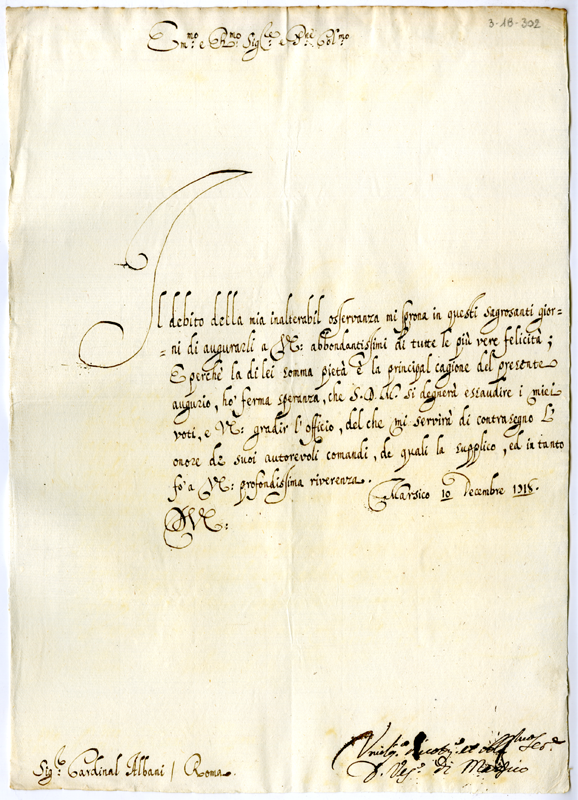 3-18-302
Em.mo e R.mo Sig.re e P.ne Col.mo
Il debito della mia inalterabil osservanza mi sprona in questi sagrosanti gior-
-ni di augurarli a V. E: abbondantissimi di tutte le più vere felicità;
E perche la di lei somma pietà è la principal cagione del presente
augurio, ho' ferma speranza, che S. D. M. si degnerà essaudire i miei
voti, e V. E: gradir l'officio, del che mi servirà di contrasegno l'
onore de suoi autorevoli comandi, de quali la supplico, ed in tanto
fo' a V. E: profondissima riverenza.
Marsico 10 Decembre 1718.
V. E:
di Marsico
Sig.r Cardinal Albani / Roma.